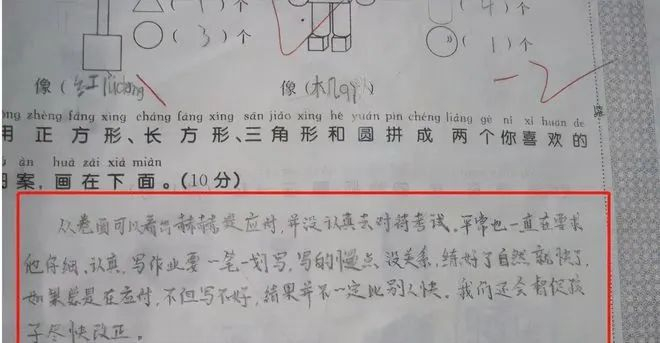 ( ) 个 ( 4 ) 个
( 3 ) 个 ( 1 ) 个
像 ( 红 lǜdēng 像 ( 机
-2
zhèng fāng xíng cháng fāng xíng sān jiǎo xíng hé yuán pīn chéng liǎng gè nǐ xǐ huan de
用 正 方 形、长 方 形、三 角 形 和 圆 拼 成 两 个 你 喜 欢 的
àn huà zài xià miàn
图 案，画 在 下 面。(10 分)
从卷面可以看出赫赫是应付，并没认真去对待考试。平常也一直在要求
他仔细、认真，写作业要一笔一划写，写的慢点没关系，练好了自然就快了，
如果总是在应付，不但写不好，结果并不一定比别人快。我们还会督促孩
子尽快改正。